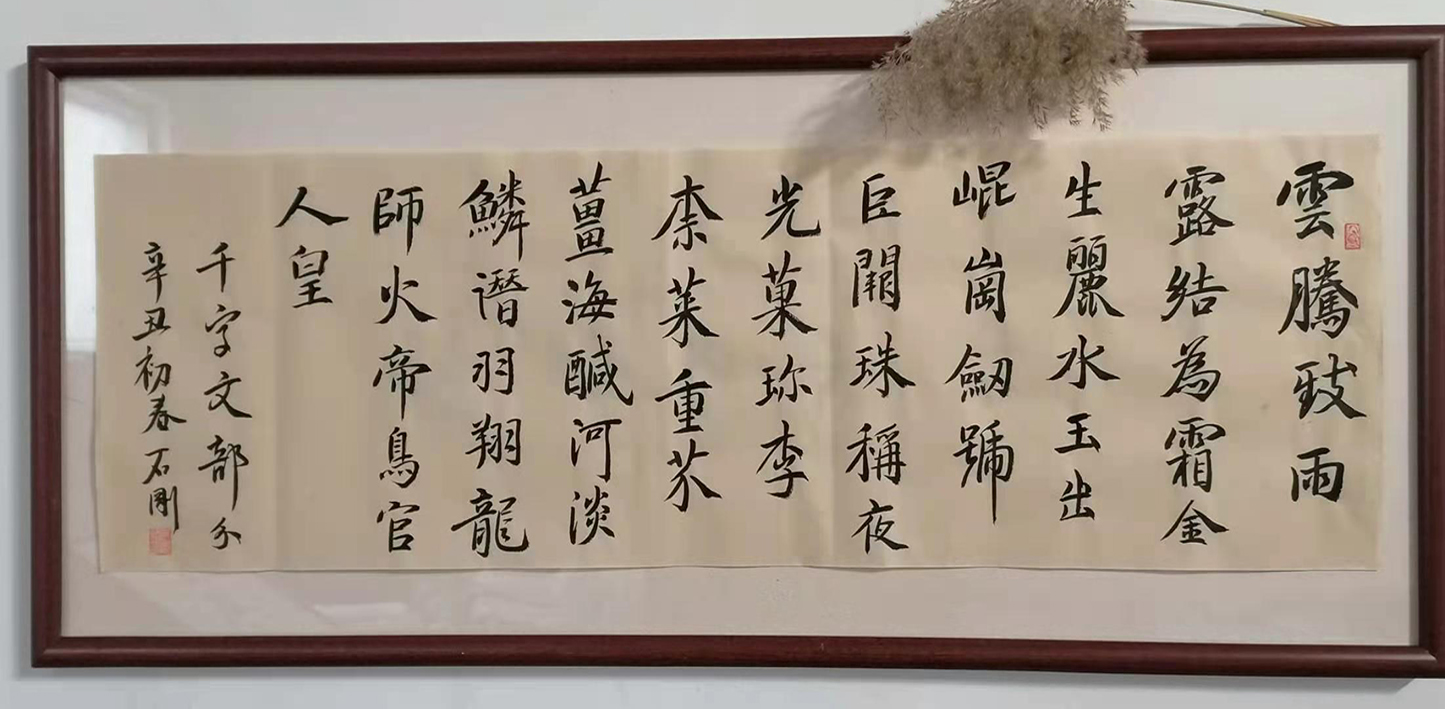 雲騰致雨
露結為霜金
生麗水玉出
崐崗劒號
巨闕珠稱夜
光菓珎李
柰菜重芥
薑海鹹河淡
鱗潛羽翔龍
師火帝鳥官
人皇
千字文部分
辛丑初春石剛